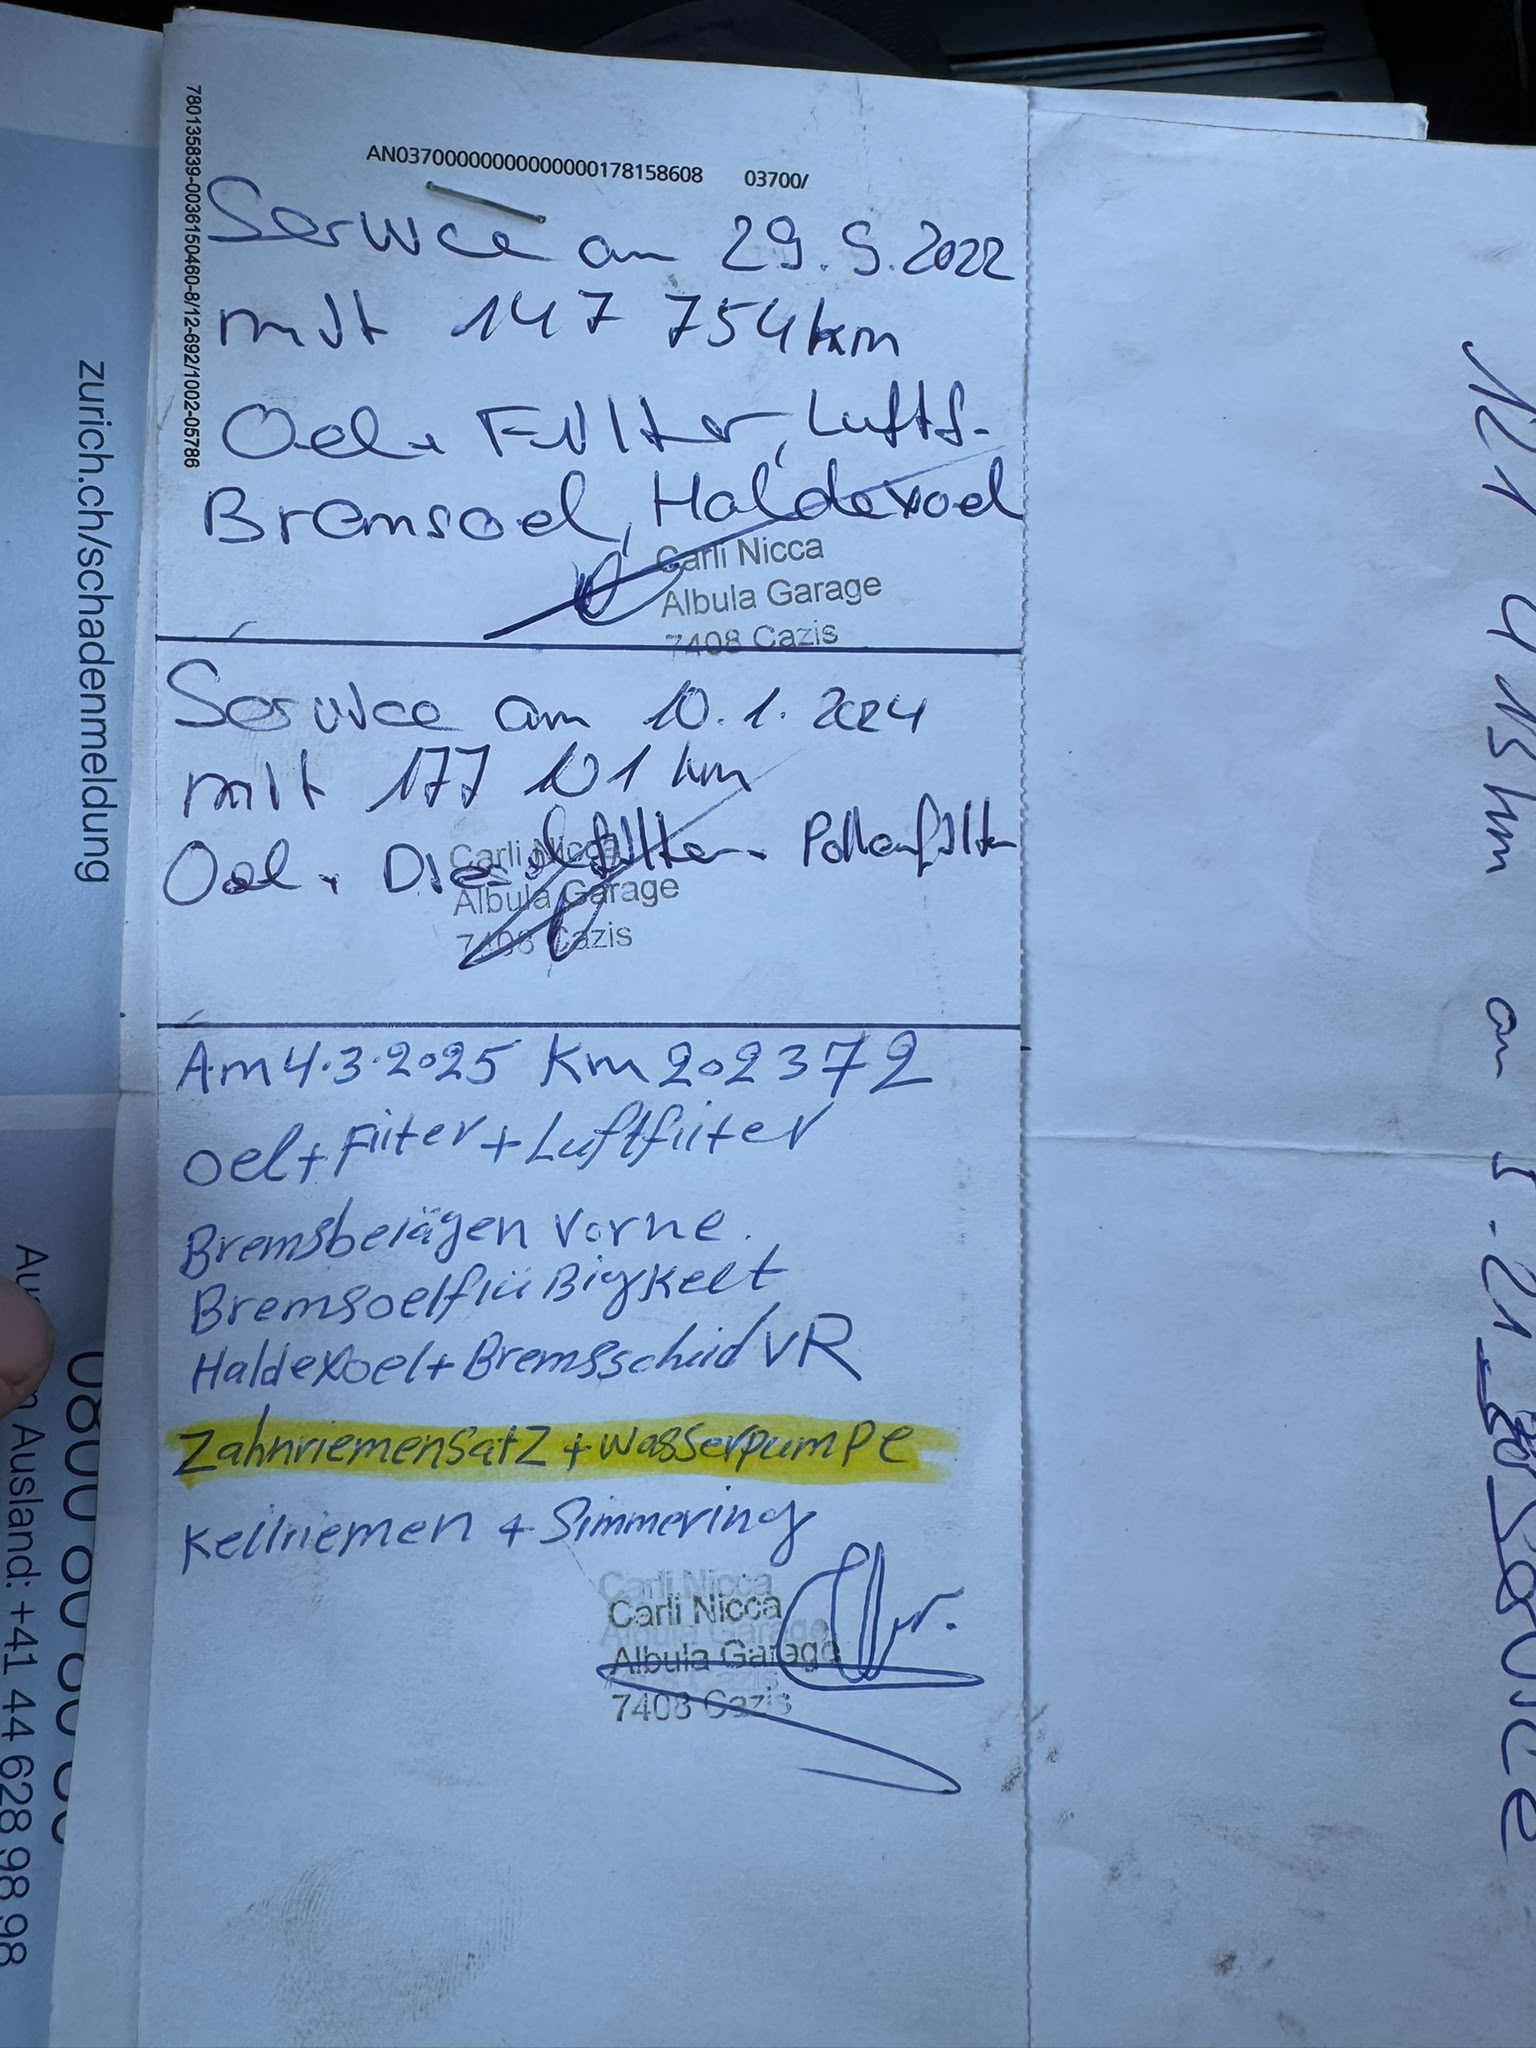 780135839-0036150460-8/12-692/1002-05786
AN03700000000000000178158608 03700/
Service am 29.9.2022
mit 147 754 km
Oel + Filter, Luftf.
Bremsoel, Haldexoel
Carli Nicca
Albula Garage
7408 Cazis
Service am 10.1.2024
mit 177 101 km
Oel + Dieselfilter + Pollenfilter
Carli Nicca
Albula Garage
7408 Cazis
Am 4.3.2025 Km 202372
Oel + Filter + Luftfilter
Bremsbelägen vorne.
Bremsoelflüßigkeit
Haldexoel + Bremsscheid VR
Zahnriemensatz + Wasserpumpe
Keilriemen + Simmering
Carli Nicca
Albula Garage
7408 Cazis
zurich.ch/schadenmeldung
Ausland: +41 44 628 98 98
Service